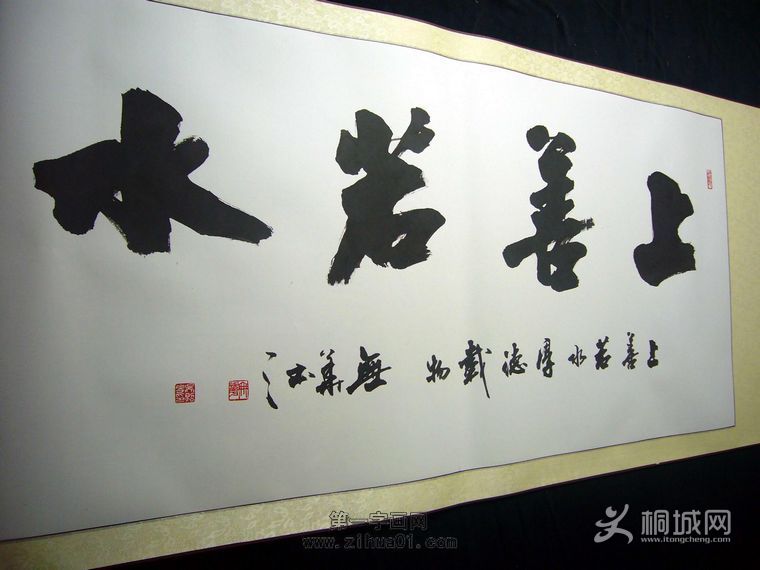 上善若水
上善若水厚德載物 無華書
第一字画网
www.zihua01.com
桐城网
www.itongcheng.com